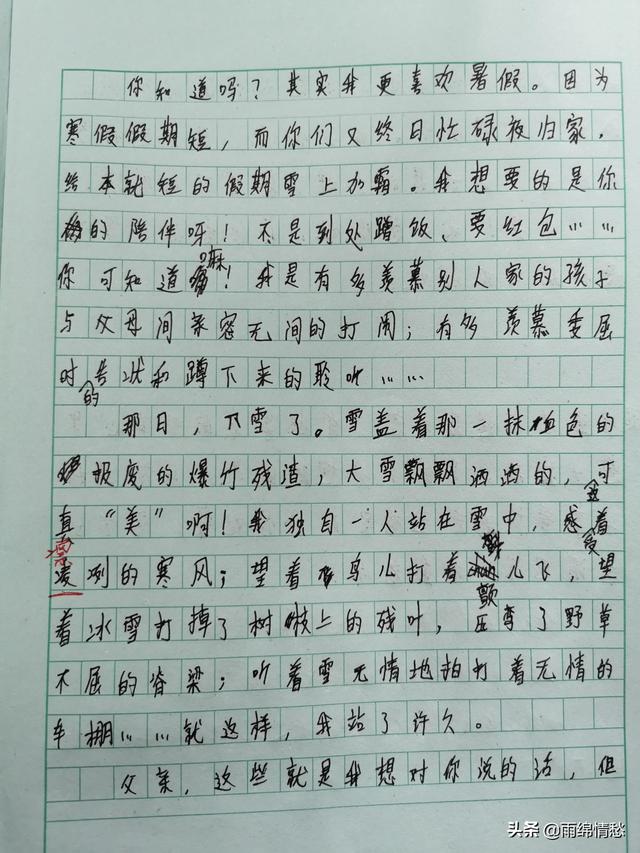 你知道吗？其实我更喜欢暑假。因为
寒假假期短，而你们又终日忙碌夜归家，
给本就短的假期雪上加霜。我想要的是你
的陪伴呀！不是到处蹭饭、要红包……
你可知道嘛！我是有多羡慕别人家的孩子
与父母间亲密无间的打闹；有多羡慕委屈
时的告状和蹲下来的聆听……
那日，下雪了。雪盖着那一抹 色的
极度的爆竹残渣，大雪飘飘洒洒的，可
真“美”啊！我独自一人站在雪中，感受着
凛
凌冽的寒风；望着鸟儿打着颤儿飞，望
着冰雪打掉了树枝上的残叶，压弯了野草
不屈的脊梁；听着雪无情地拍打着无情的
车棚……就这样，我站了许久。
父亲，这些就是我想对你说的话，但
头条 @雨绵情愁